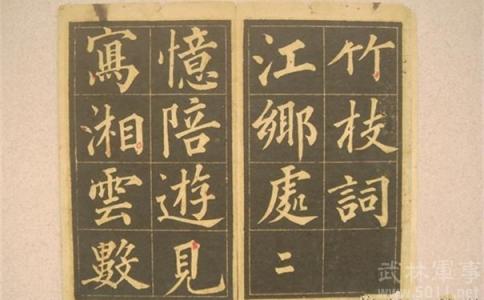 竹枝詞
江鄉處二
憶陪遊見
寫湘雲數
武林軍事
www.5011.net